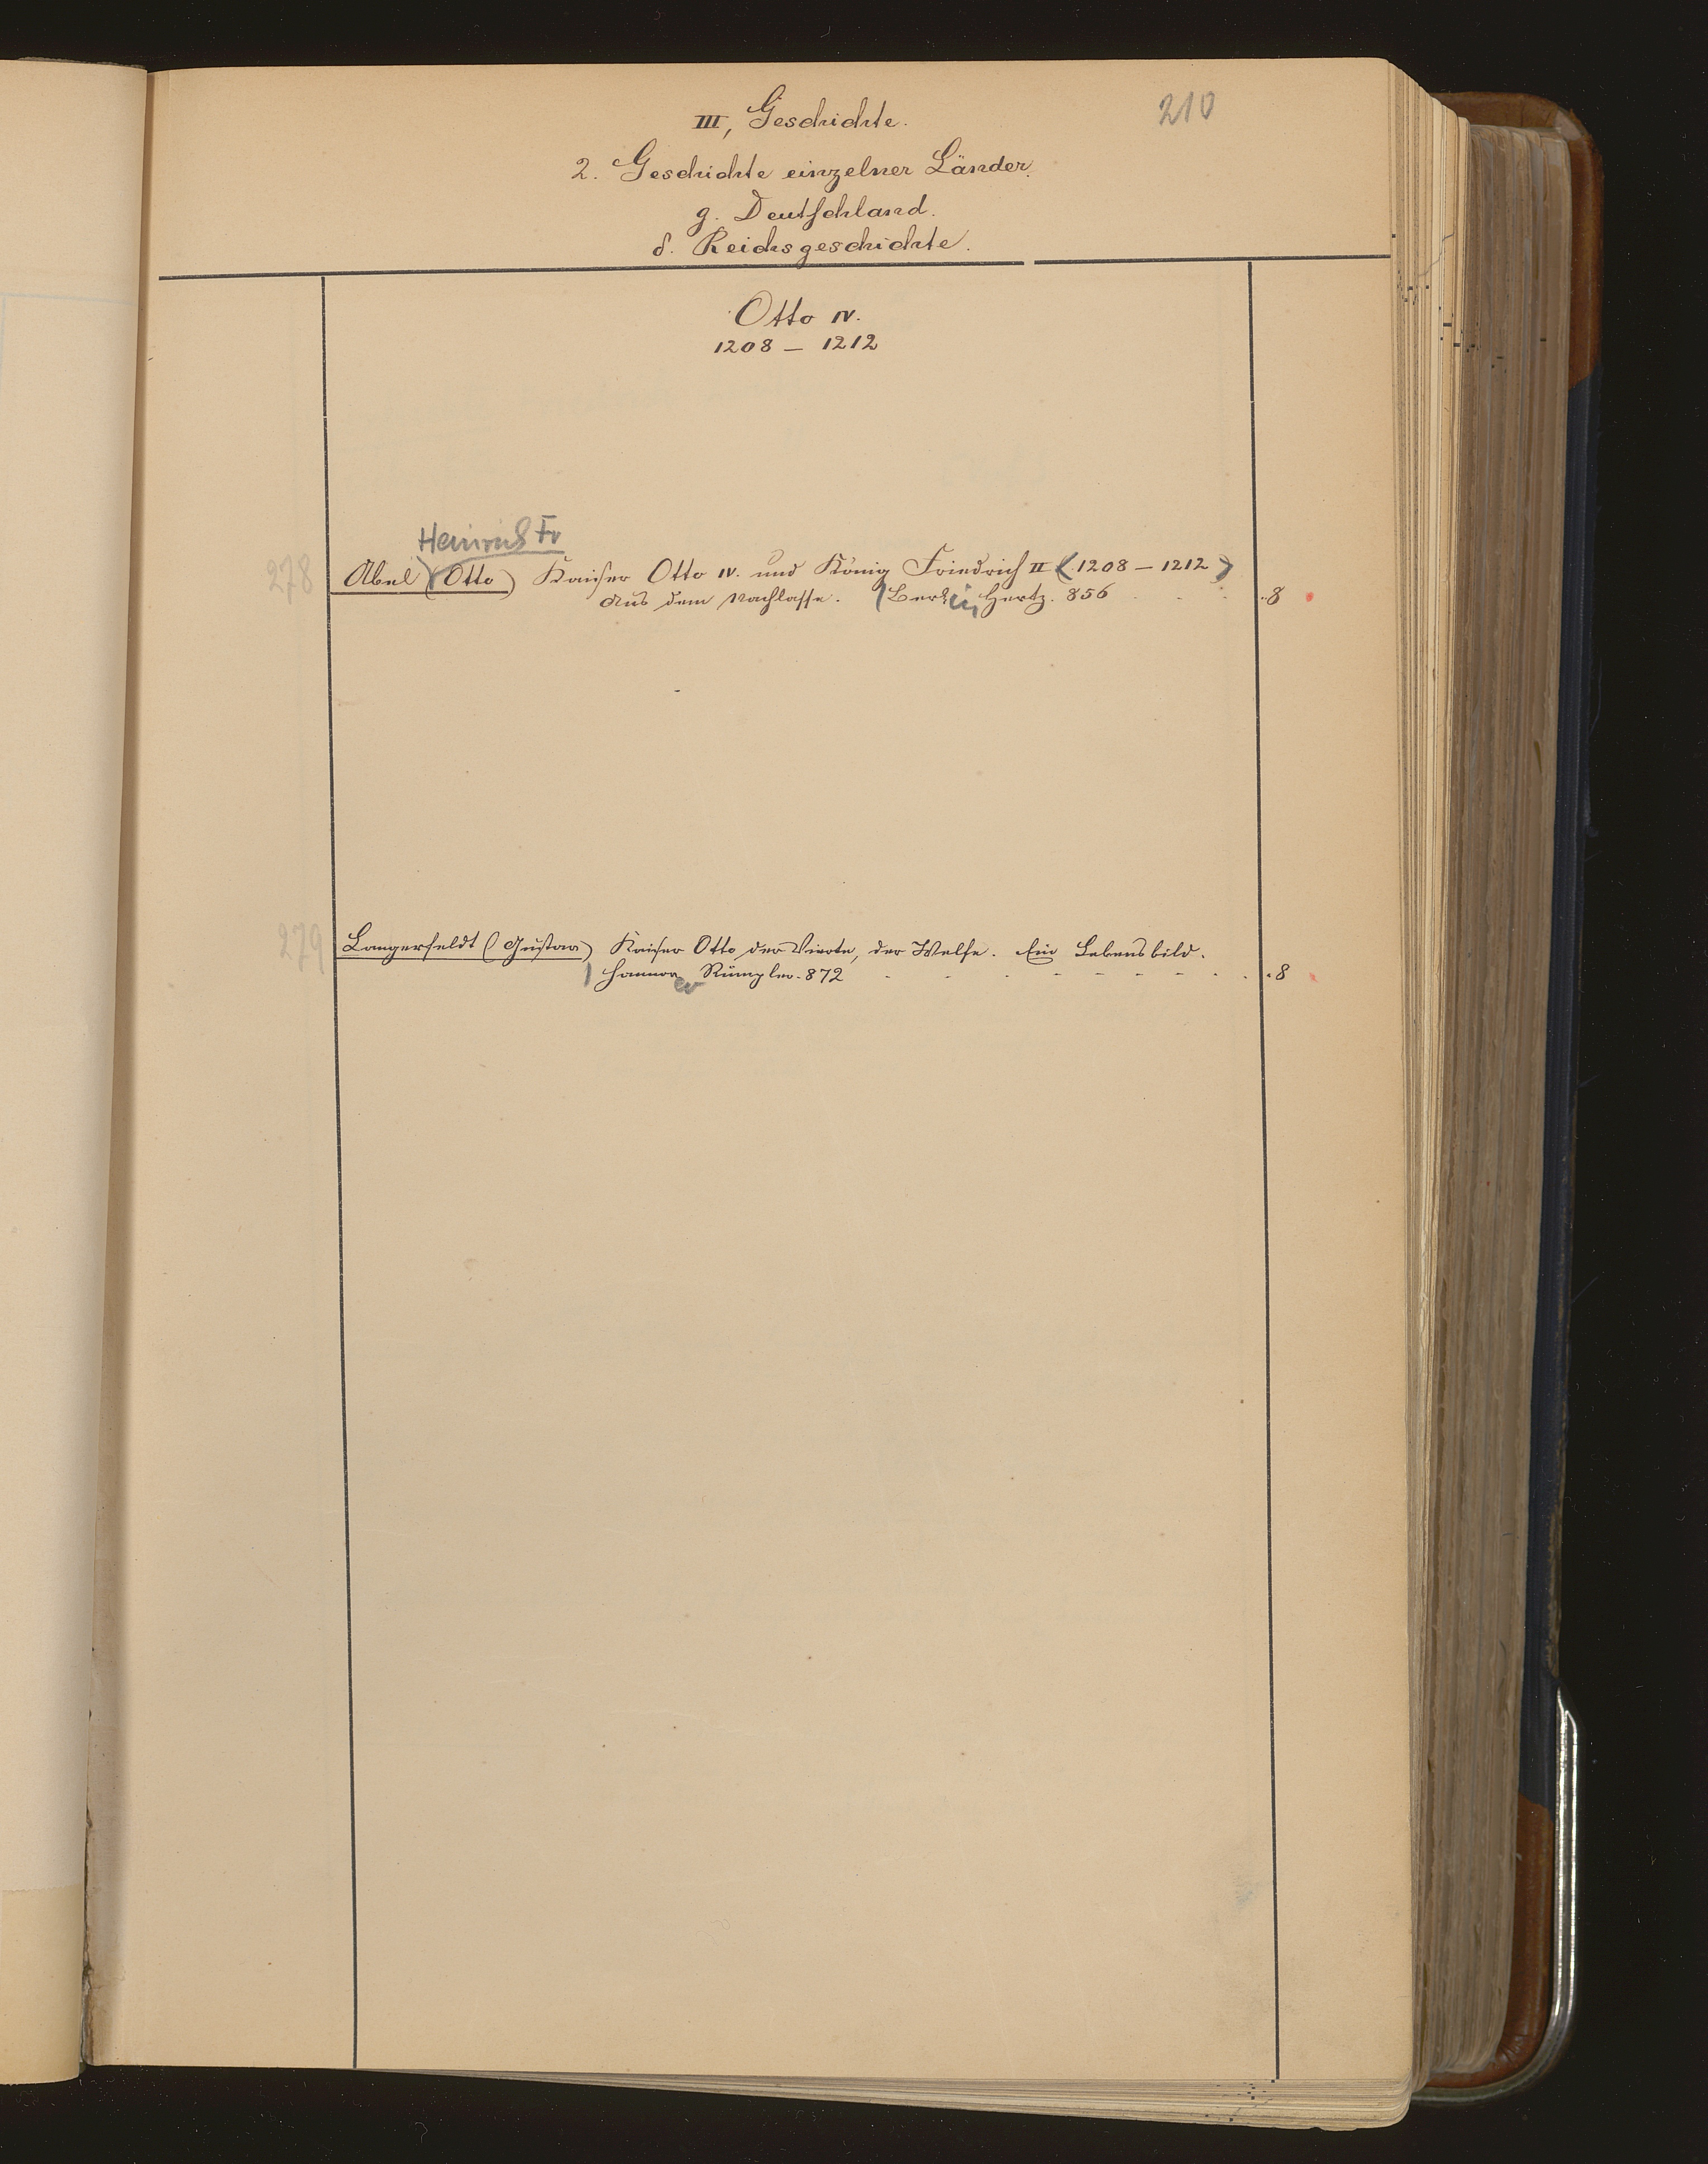 210
III, Geschichte.
2. Geschichte einzelner Länder.
g. Deutschland.
δ. Reichsgeschichte.
Otto IV.
1208 – 1212
Heinrich Fr
278 Abel (Otto) Kaiser Otto IV. und König Friedrich II (1208 – 1212)
Aus dem Nachlasse. Berlin, Hertz. 856 . . . 8
279 Langerfeldt (Gustav) Kaiser Otto der Vierte, der Welfe. Ein Lebensbild.
Hannover Rümpler. 872 - - - - - - - - . . 8